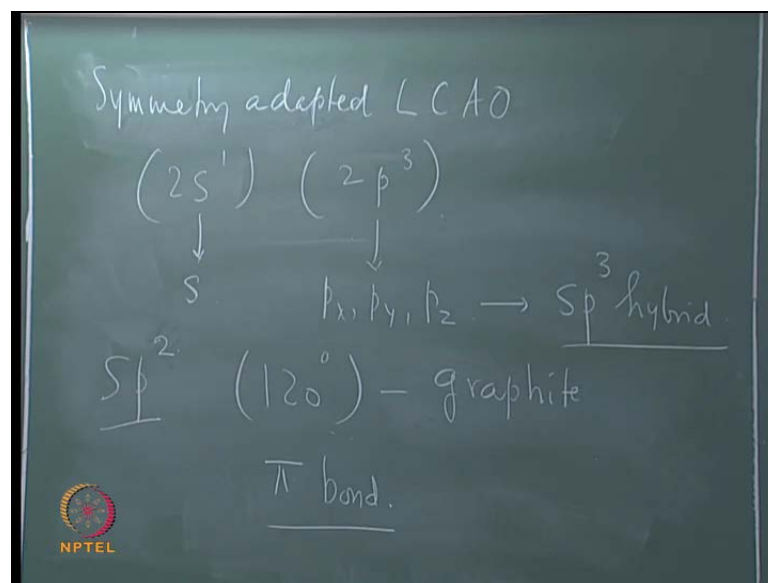 Symmetry adapted LCAO
(2s¹) (2p³)
↓ ↓
s pₓ, p_y, p_z → sp³ hybrid.
sp² (120°) - graphite
π bond.
NPTEL